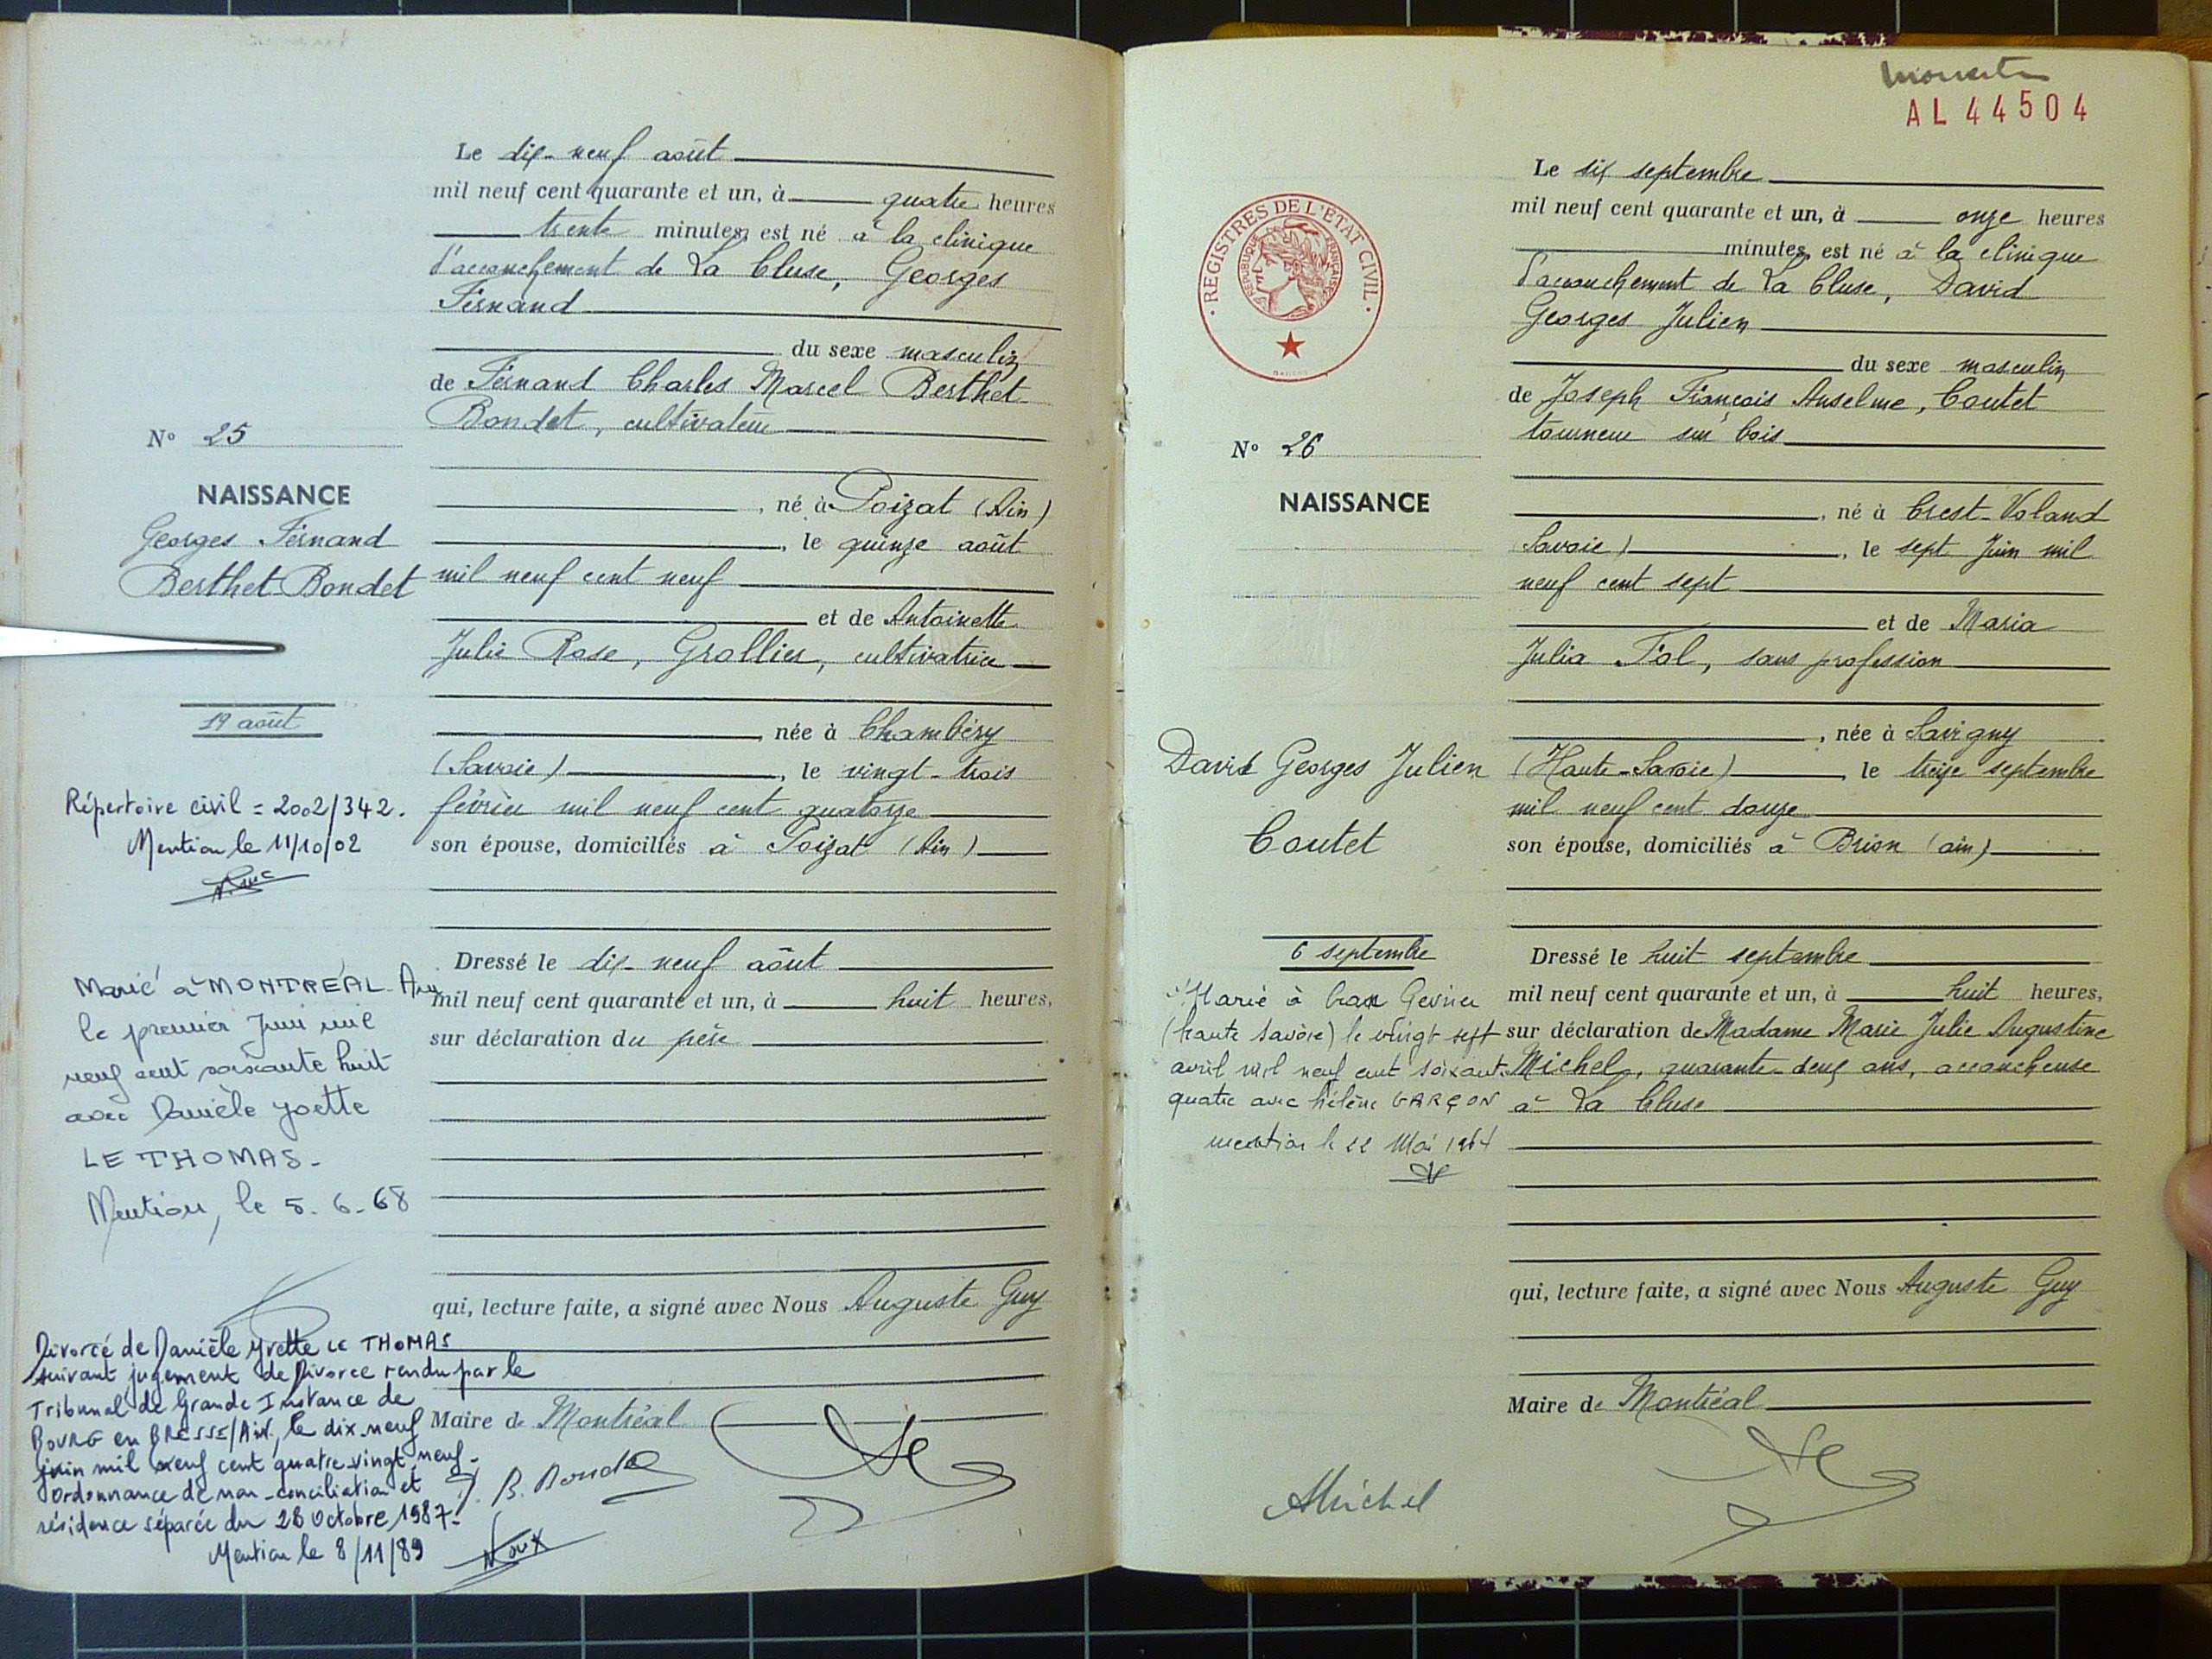 Le dix-neuf août
mil neuf cent quarante et un, à quatre heures
trente minutes, est né à la clinique
d'accouchement de La Cluse, Georges
Fernand
du sexe masculin
de Fernand Charles Marcel Berthet-
Bondet, cultivateur
N° 25
NAISSANCE
Georges Fernand
Berthet-Bondet
, né à Poizat (Ain)
, le quinze août
mil neuf cent neuf
et de Antoinette
Julie Rose, Grollier, cultivatrice
19 août
née à Chambéry
(Savoie), le vingt-trois
février mil neuf cent quatorze
son épouse, domiciliés à Poizat (Ain)
Répertoire civil = 2002/342.
Mention le 11/10/02
Dressé le dix-neuf août
mil neuf cent quarante et un, à huit heures,
sur déclaration du père
Marié à MONTREAL-Ain
le premier Juin mil
neuf cent soixante huit
avec Danièle Yvette
LE THOMAS-
Mention, le 5-6-68
qui, lecture faite, a signé avec Nous Auguste Guy
Maire de Montréal
Divorcé de Danièle Yvette LE THOMAS
suivant jugement de Divorce rendu par le
Tribunal de Grande Instance de
BOURG en BRESSE/Ain, le dix-neuf
juin mil neuf cent quatre-vingt-neuf-
Ordonnance de non-conciliation et
résidence séparée du 28 Octobre 1987-
Mention le 8/11/89
B. Bondet
AL 44504
REGISTRES DE L'ETAT CIVIL
REPUBLIQUE FRANÇAISE
Le six septembre
mil neuf cent quarante et un, à onze heures
minutes, est né à la clinique
d'accouchement de La Cluse, David
Georges Julien
du sexe masculin
de Joseph François Anselme, Coutet
tourneur sur bois
N° 26
NAISSANCE
David Georges Julien
Coutet
, né à Crest-Voland
Savoie), le sept Juin mil
neuf cent sept
et de Maria
Julia Fol, sans profession
, née à Savigny
(Haute-Savoie), le treize septembre
mil neuf cent douze
son épouse, domiciliés à Brion (ain)
6 septembre
Dressé le huit septembre
mil neuf cent quarante et un, à huit heures,
sur déclaration de Madame Marie Julie Augustine
Michel, quarante-deux ans, accoucheuse
à La Cluse
Marié à Cran Gevrier
(haute savoie) le vingt sept
avril mil neuf cent soixante
quatre avec hélène GARÇON
mention le 22 Mai 1964
qui, lecture faite, a signé avec Nous Auguste Guy
Maire de Montréal
Michel